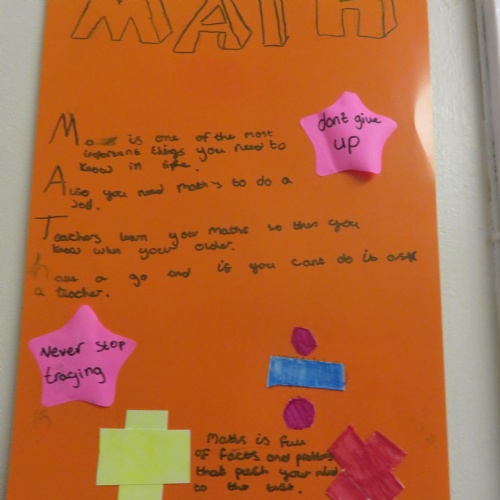 MATH
Ma is one of the most
important things you need to
know in life.
Also you need maths to do a
Job.
Teachers learn your maths so then you
know when your older.
have a go and if you cant do it ask
a teacher.
dont give
up
Never stop
traging
Maths is full
of facts and problems
that push your mind
to the test.